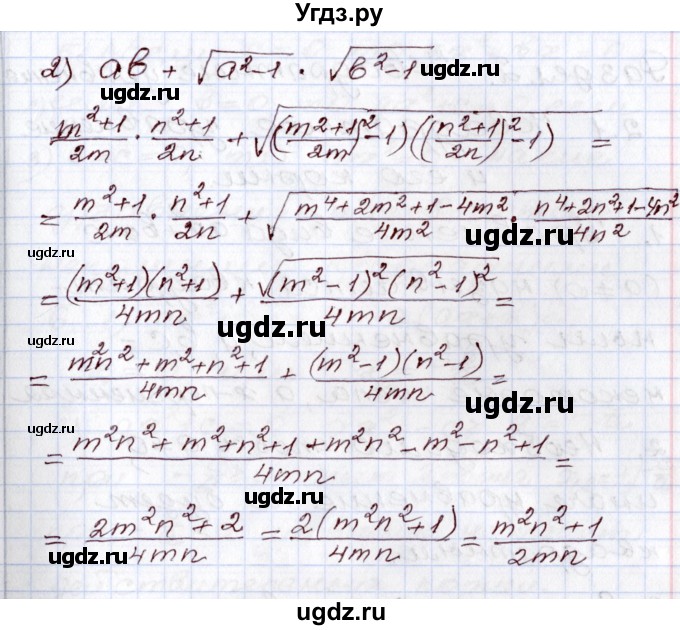 Угдз.ру
2) ab + √(a²-1) · √(b²-1)
ugdz.ru ugdz.ru
(m²+1)/(2m) · (n²+1)/(2n) + √(((m²+1)/(2m))²-1)(((n²+1)/(2n))²-1) =
= (m²+1)/(2m) · (n²+1)/(2n) + √((m⁴+2m²+1-4m²)/(4m²) · (n⁴+2n²+1-4n²)/(4n²))
ugdz.ru ugdz.ru
= ((m²+1)(n²+1))/(4mn) + √((m²-1)²(n²-1)²)/(4mn) =
ugdz.ru
= (m²n²+m²+n²+1)/(4mn) + ((m²-1)(n²-1))/(4mn) =
ugdz.ru ugdz.ru
= (m²n²+m²+n²+1+m²n²-m²-n²+1)/(4mn) =
ugdz.ru
= (2m²n²+2)/(4mn) = (2(m²n²+1))/(4mn) = (m²n²+1)/(2mn)
ugdz.ru ugdz.ru
ugdz.ru